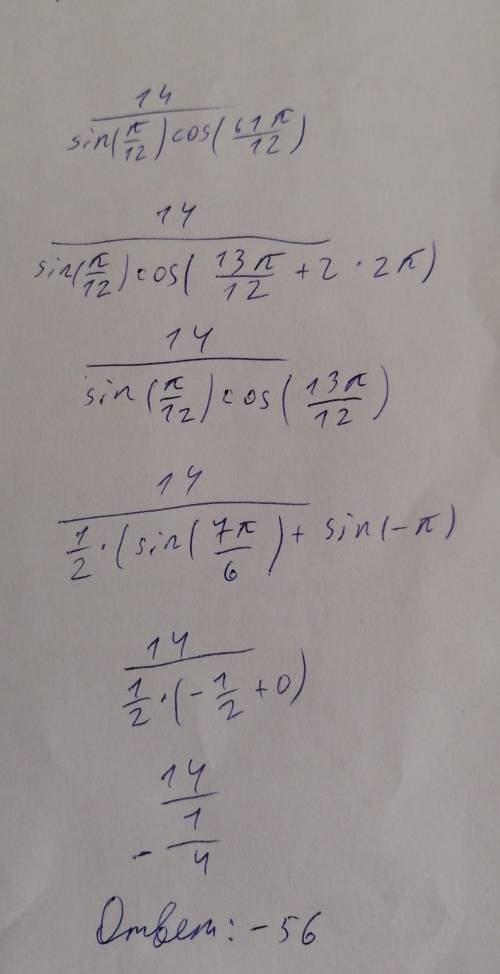 14
sin(π/12)cos(61π/12)
14
sin(π/12)cos(13π/12 + 2 · 2π)
14
sin(π/12)cos(13π/12)
14
1/2 · (sin(7π/6) + sin(-π)
14
1/2 · (-1/2 + 0)
14
- 1/4
Ответ: -56